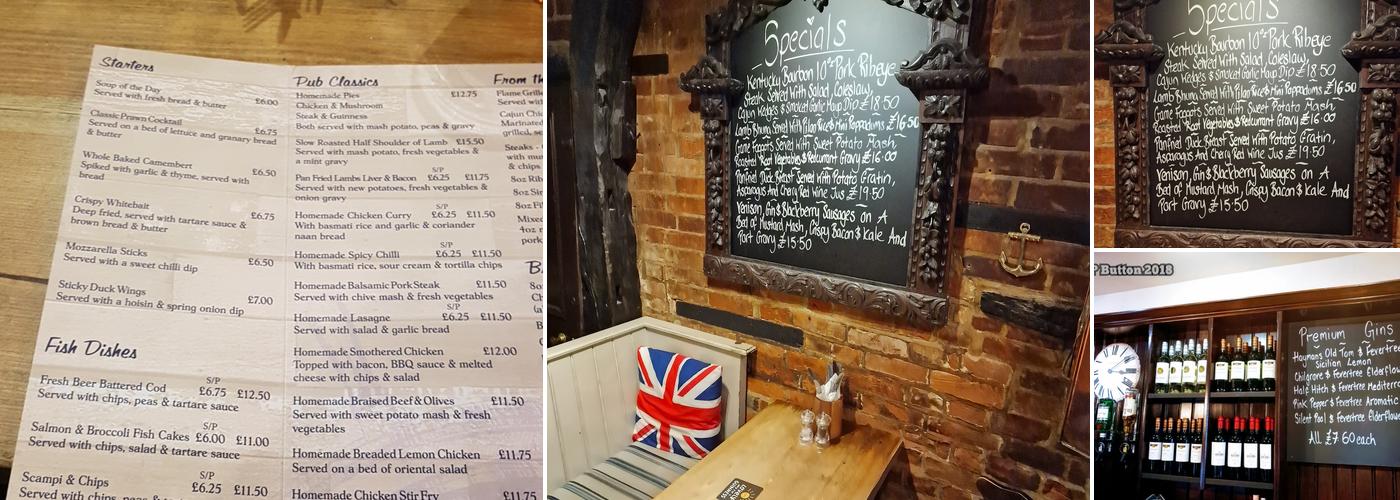 Starters
Soup of the Day
Served with fresh bread & butter £6.00
Classic Prawn Cocktail £6.75
Served on a bed of lettuce and granary bread
& butter
Whole Baked Camembert £6.50
Spiked with garlic & thyme, served with
bread
Crispy Whitebait £6.75
Deep fried, served with tartare sauce &
brown bread & butter
Mozzarella Sticks £6.50
Served with a sweet chilli dip
Sticky Duck Wings £7.00
Served with a hoisin & spring onion dip
Fish Dishes
S/P
Fresh Beer Battered Cod £6.75 £12.50
Served with chips, peas & tartare sauce
S/P
Salmon & Broccoli Fish Cakes £6.00 £11.00
Served with chips, salad & tartare sauce
S/P
Scampi & Chips £6.25 £11.50
Served with chips, peas &
Pub Classics
Homemade Pies £12.75
Chicken & Mushroom
Steak & Guinness
Both served with mash potato, peas & gravy
Slow Roasted Half Shoulder of Lamb £15.50
Served with mash potato, fresh vegetables &
a mint gravy
S/P
Pan Fried Lambs Liver & Bacon £6.25 £11.75
Served with new potatoes, fresh vegetables &
onion gravy
S/P
Homemade Chicken Curry £6.25 £11.50
With basmati rice and garlic & coriander
naan bread
S/P
Homemade Spicy Chilli £6.25 £11.50
With basmati rice, sour cream & tortilla chips
Homemade Balsamic Pork Steak £11.50
Served with chive mash & fresh vegetables
S/P
Homemade Lasagne £6.25 £11.50
Served with salad & garlic bread
Homemade Smothered Chicken £12.00
Topped with bacon, BBQ sauce & melted
cheese with chips & salad
Homemade Braised Beef & Olives £11.50
Served with sweet potato mash & fresh
vegetables
Homemade Breaded Lemon Chicken £11.75
Served on a bed of oriental salad
Homemade Chicken Stir Fry £11.75
From th
Flame Grille
Served wit
Cajun Chic
Marinated
grilled, se
Steaks -
with mu
& chips
8oz Ri
8oz Sir
8oz Fi
Mixed
4oz r
pork
B
8o
Specials
Kentucky Bourbon 10oz Pork Ribeye
Steak Served With Salad, Coleslaw,
Cajun Wedges & Smoked Garlic Mayo Dip £18.50
Lamb Bhuna Served With Pilau Rice & Mini Poppadoms £16.50
Game Faggots Served With Sweet Potato Mash,
Roasted Root Vegetables & Redcurrant Gravy £16.00
Panfried Duck Breast Served With Potato Gratin,
Asparagus And Cherry Red Wine Jus £19.50
Venison, Gin & Blackberry Sausages on A
Bed of Mustard Mash, Crispy Bacon & Kale And
Port Gravy £15.50
Specials
Kentucky Bourbon 10oz Pork Ribeye
Steak Served With Salad, Coleslaw,
Cajun Wedges & Smoked Garlic Mayo Dip £18.50
Lamb Bhuna Served With Pilau Rice & Mini Poppadoms £16.50
Game Faggots Served With Sweet Potato Mash,
Roasted Root Vegetables & Redcurrant Gravy £16.00
Panfried Duck Breast Served With Potato Gratin,
Asparagus And Cherry Red Wine Jus £19.50
Venison, Gin & Blackberry Sausages on A
Bed of Mustard Mash, Crispy Bacon & Kale And
Port Gravy £15.50
P Button 2018
Premium Gins
Haymans Old Tom & Fevertree
Sicilian Lemon
Chilgrove & Fevertree Elderflow
Half Hitch & Fevertree Mediterr
Pink Pepper & Fevertree Aromatic
Silent Pool & Fevertree Elderflow
All £7.60 each